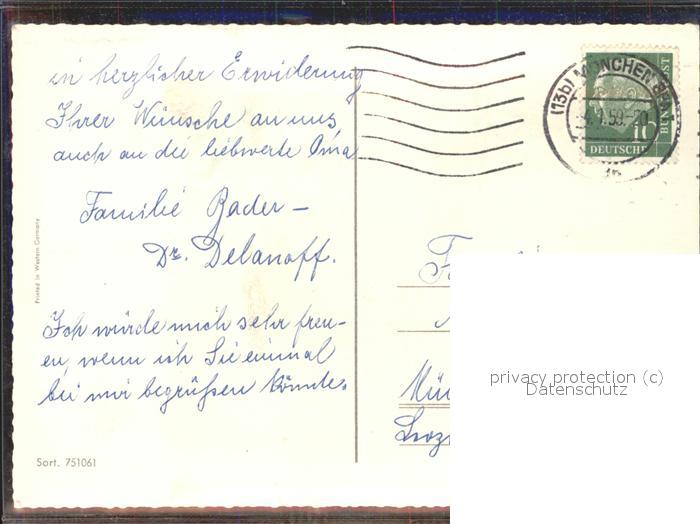 in herzlicher Erwiderung
Ihrer Wünsche an uns,
auch an die liebwerte Oma
Familie Bader –
Dr. Delanoff.
Ich würde mich sehr freu-
en, wenn ich Sie einmal
bei mir begrüßen könnte.
Printed in Western Germany
Sort. 751061
(13b) MÜNCHEN
.59.-20
10
DEUTSCHE
BUNDESPOST
Mün
privacy protection (c)
Datenschutz